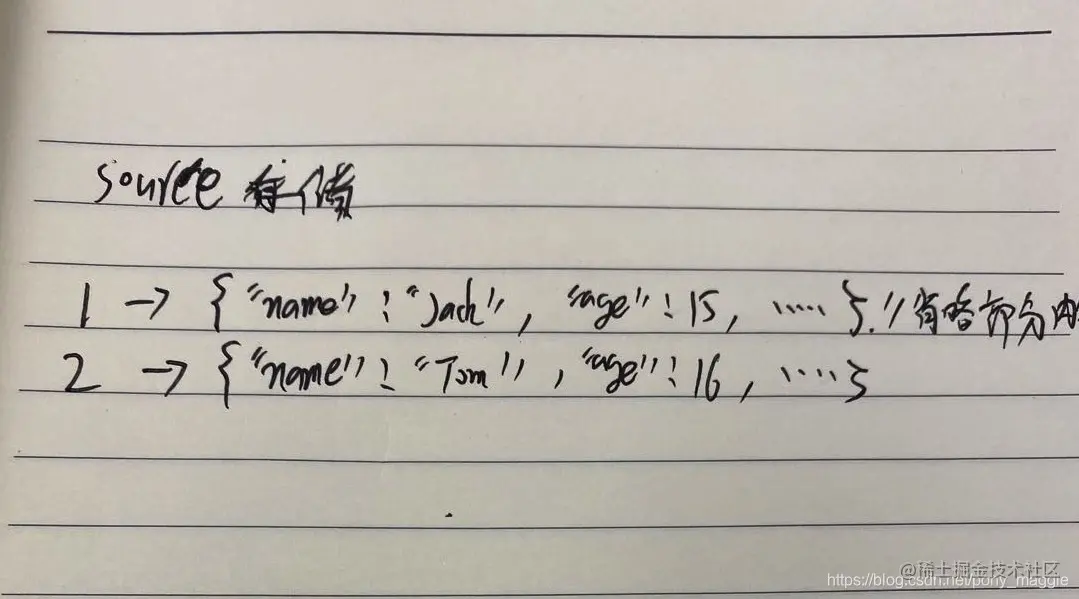 source 存储
1 → {"name":"Jack", "age":15, .....}.//省略部分内
2 → {"name":"Tom", "age":16, .....}
@稀土掘金技术社区
https://blog.csdn.net/pony_maggie